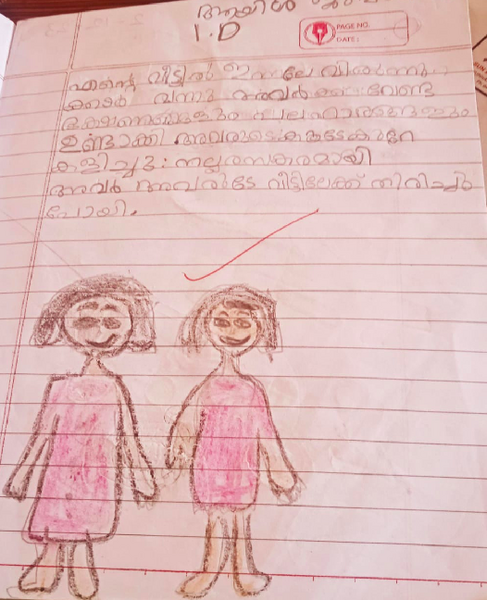 ആയിശ
1.D
PAGE NO.
DATE:
എന്റെ വീട്ടിൽ ഇന്നലെ വിരുന്നു
കാർ വന്നു അവർക്ക് വേണ്ട
ഭക്ഷണങ്ങളും പലഹാരങ്ങളും
ഉണ്ടാക്കി അവരുടെകൂടെകുറേ
കളിച്ചു: നല്ലരസകരമായി
അവർ അവരുടേ വീട്ടിലേക്ക് തിരിച്ചു
പോയി.